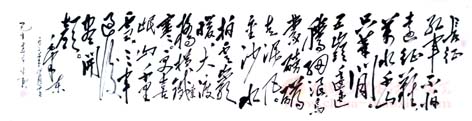 长征
红军不怕
远征难
万水千山
只等闲
五岭逶迤
腾细浪乌
蒙磅礴
走泥丸
金沙水
拍云崖
暖大渡
桥横铁
索寒更喜
岷山千里
雪三军
过后
尽开
颜
毛泽东